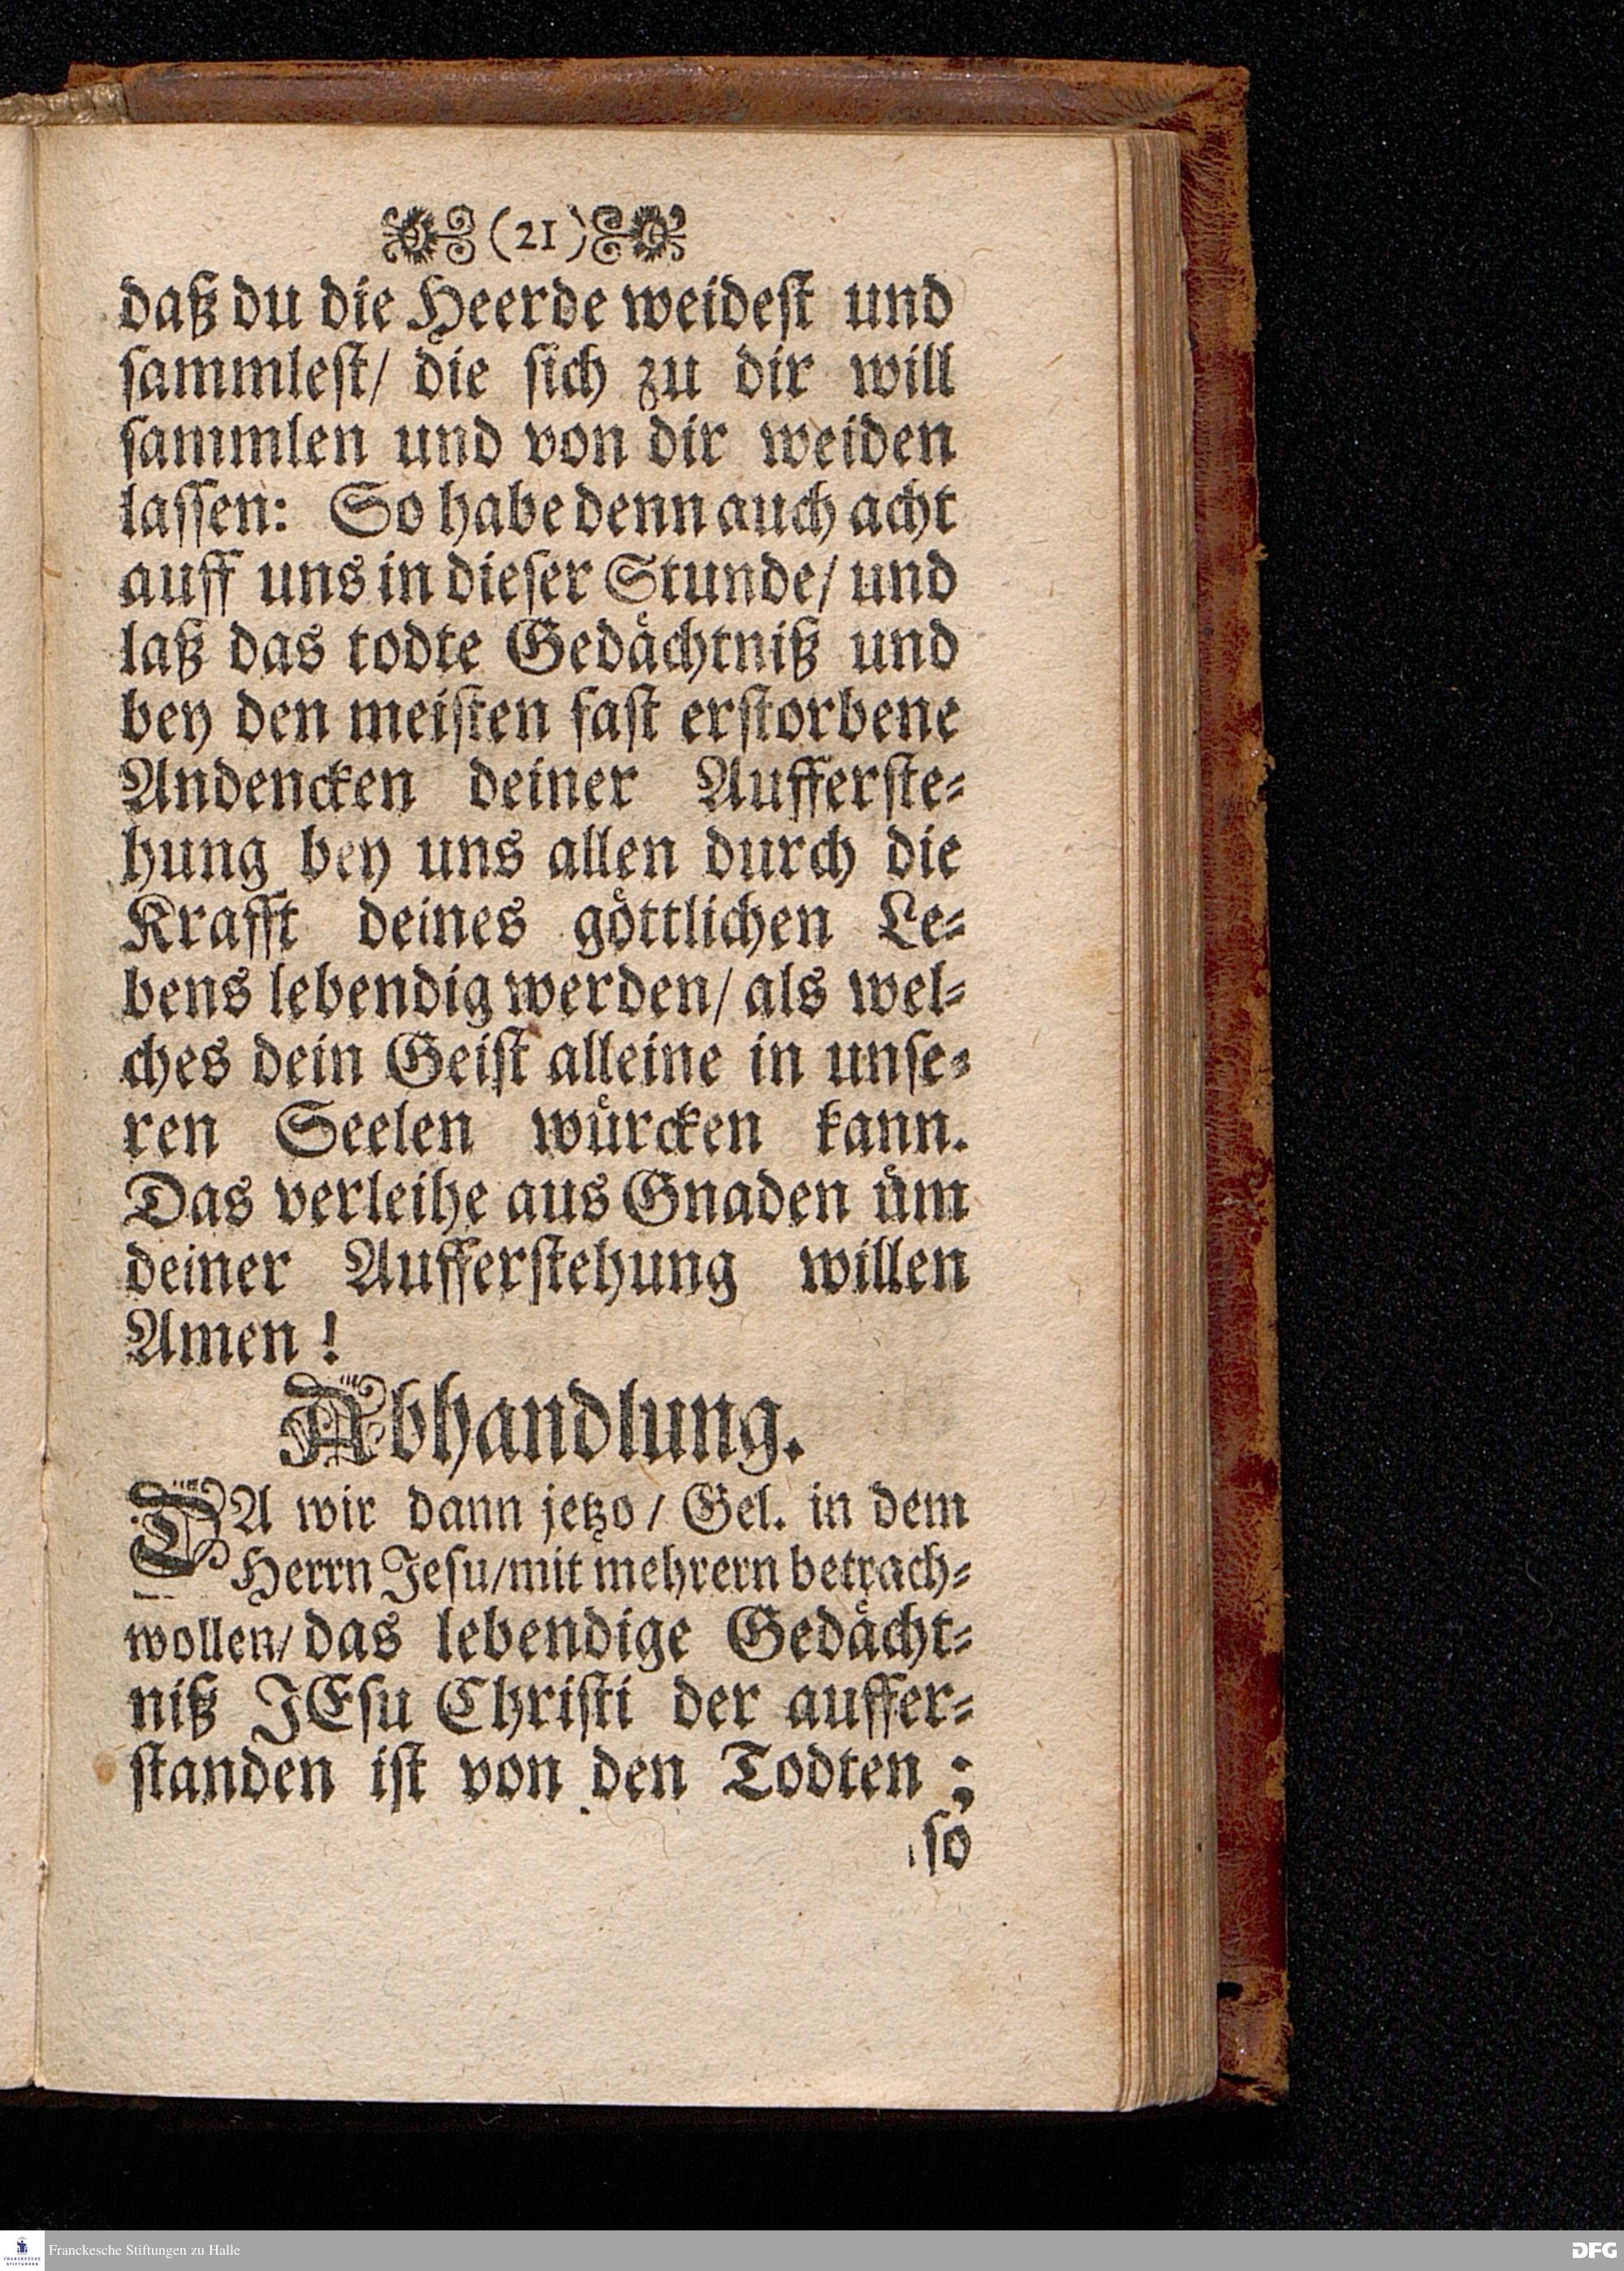 (21)
daß du die Heerde weidest und
sammlest/ die sich zu dir will
sammlen und von dir weiden
lassen: So habe denn auch acht
auff uns in dieser Stunde/ und
laß das todte Gedächtniß und
bey den meisten fast erstorbene
Andencken deiner Aufferste-
hung bey uns allen durch die
Krafft deines göttlichen Le-
bens lebendig werden/ als wel-
ches dein Geist alleine in unse-
ren Seelen würcken kann.
Das verleihe aus Gnaden üm
deiner Aufferstehung willen
Amen!
Abhandlung.
DA wir dann jetzo/ Gel. in dem
Herrn Jesu/mit mehrern betrach-
wollen/ das lebendige Gedächt-
niß JEsu Christi der auffer-
standen ist von den Todten;
so
Franckesche Stiftungen zu Halle
FRANCKESCHE
STIFTUNGEN
DFG